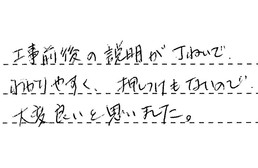 工事前後の説明が丁ねいで、
わかりやすく、押しつけもないので
大変良いと思いました。